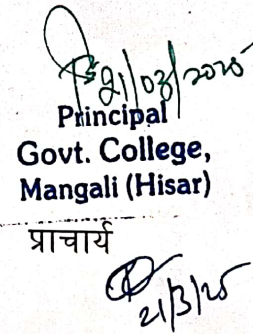 21/03/2025
Principal
Govt. College,
Mangali (Hisar)
प्राचार्य
21/3/25